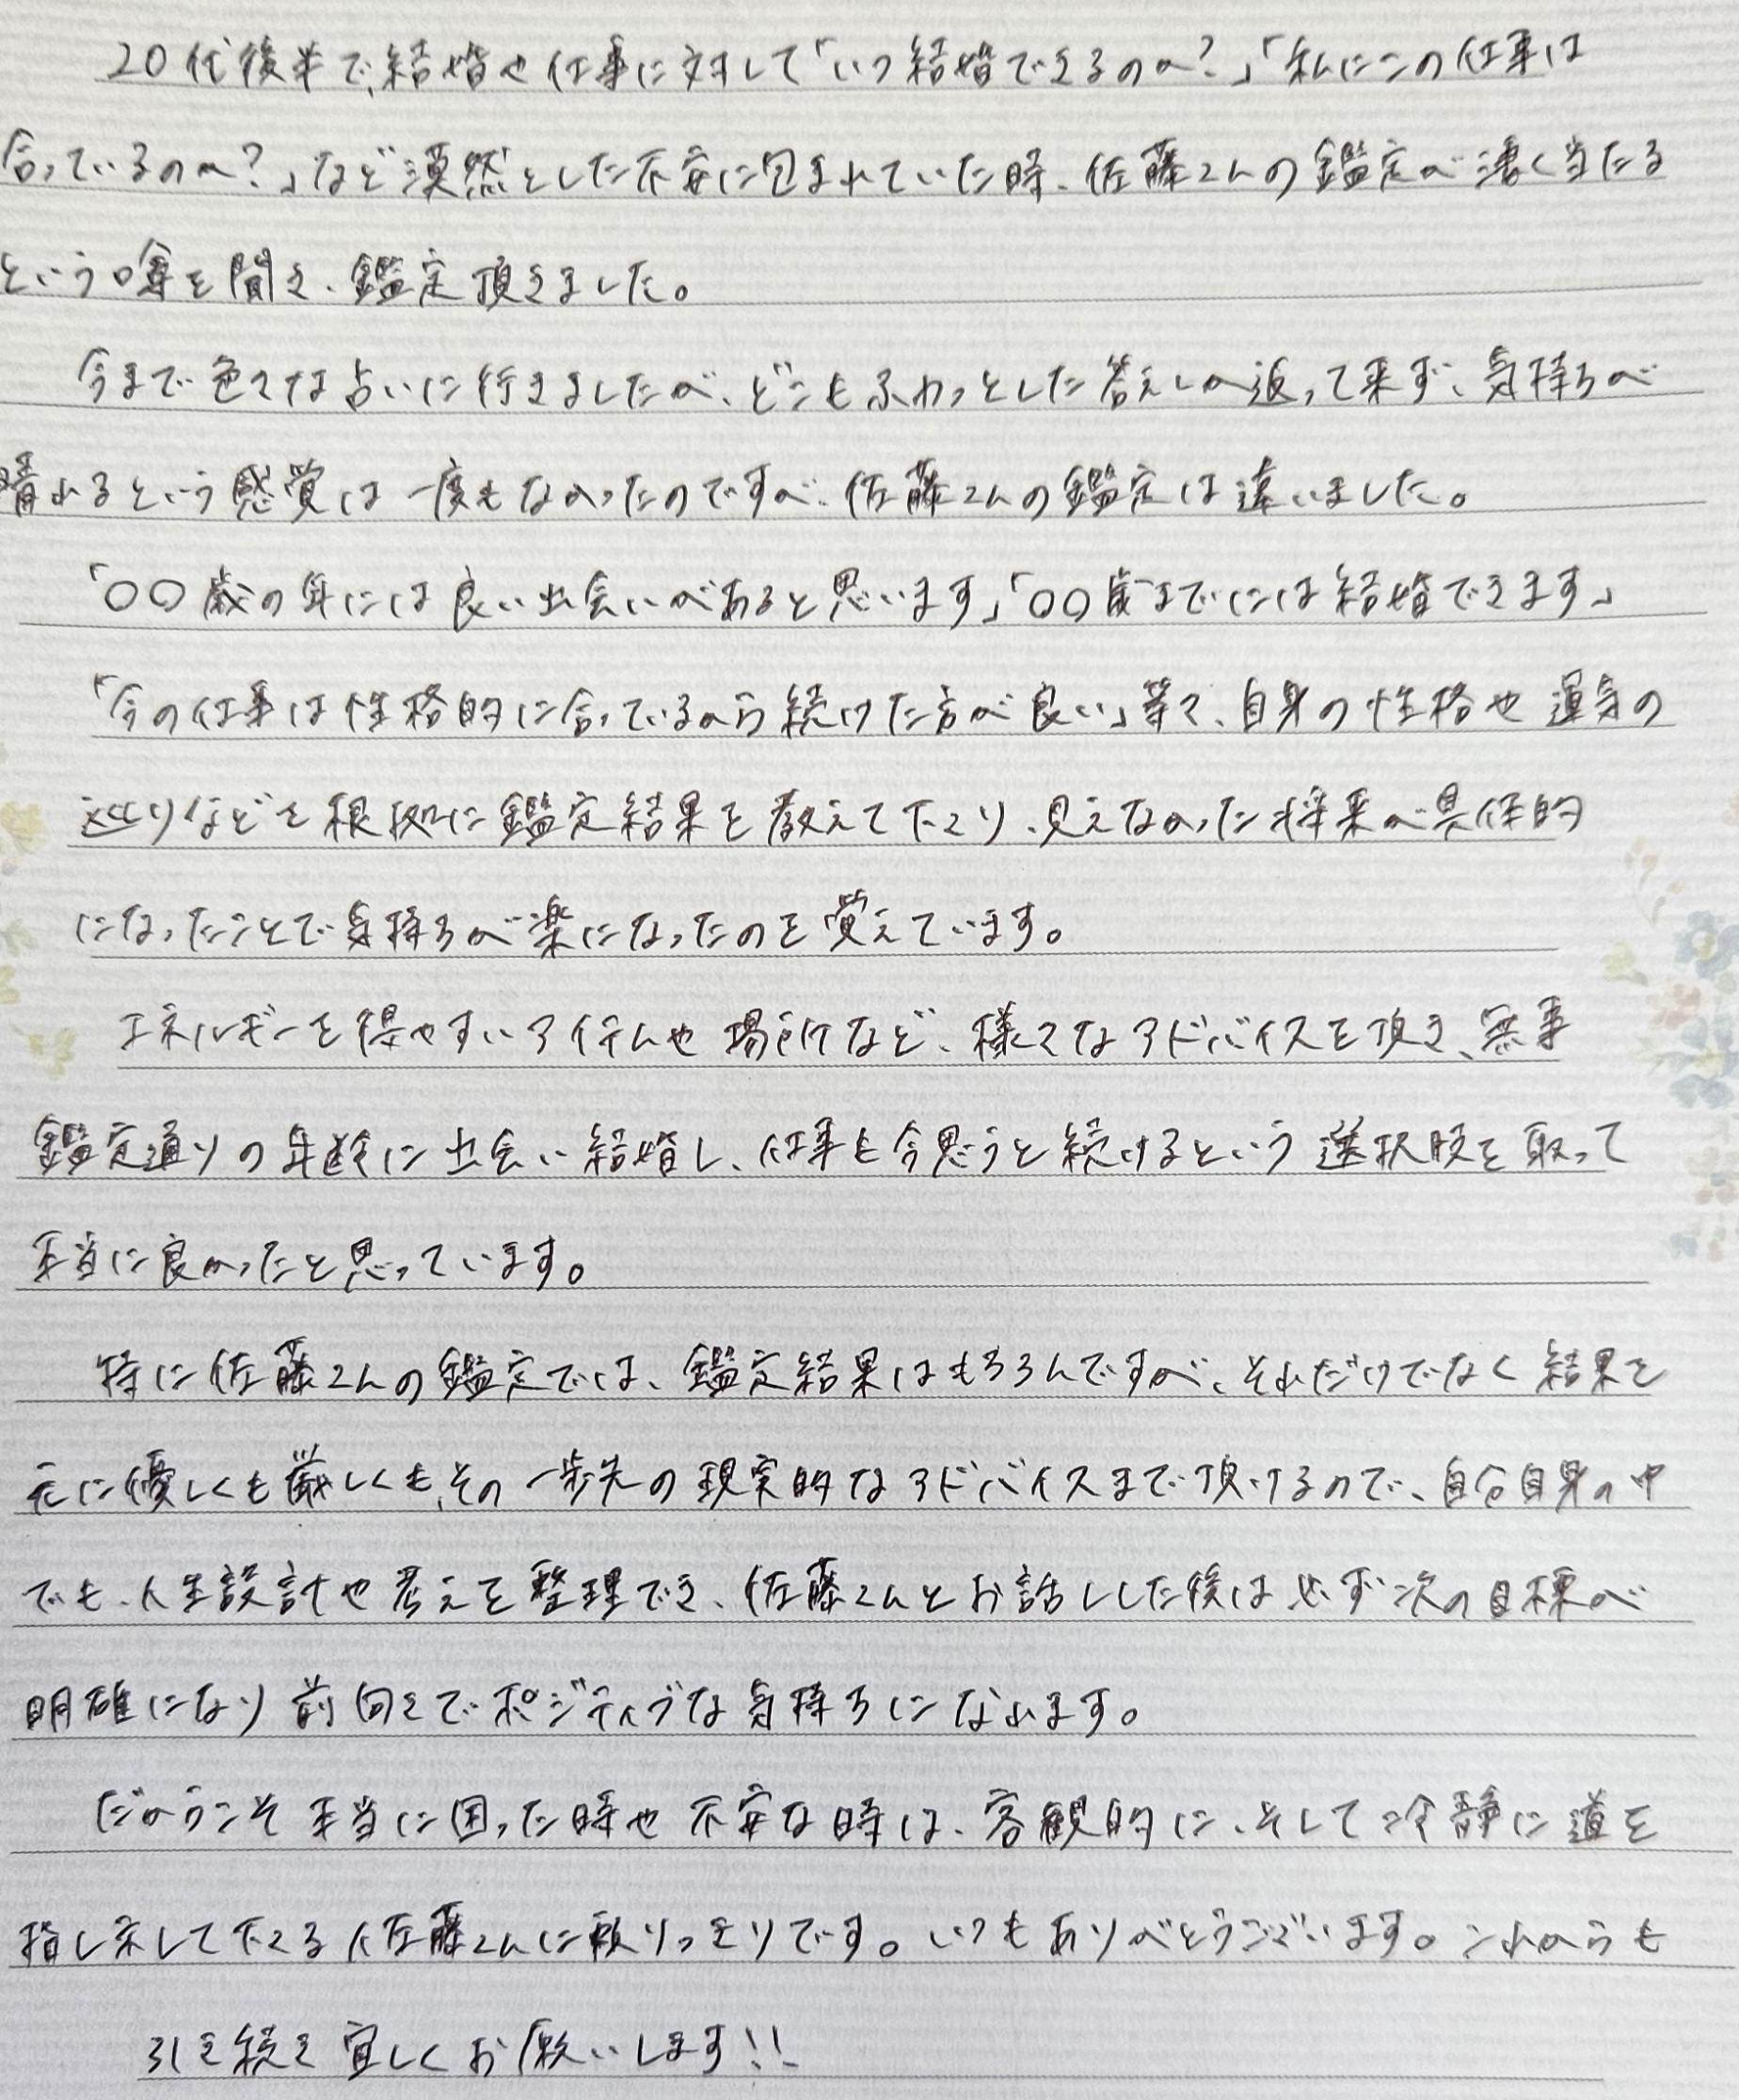 20代後半で、結婚や仕事に対して「いつ結婚できるのか?」「私にこの仕事は
合っているのか?」など漠然とした不安に包まれていた時、佐藤さんの鑑定が凄く当たる
という噂を聞き、鑑定頂きました。
今まで色々な占いに行きましたが、どこもふわっとした答えしか返って来ず、気持ちが
晴れるという感覚は一度もなかったのですが、佐藤さんの鑑定は違いました。
「〇〇歳の年には良い出会いがあると思います」「〇〇歳までには結婚できます」
「今の仕事は性格的に合っているから続けた方が良い」等々、自身の性格や運気の
巡りなどを根拠に鑑定結果を教えて下さり、見えなかった将来が具体的
になったことで気持ちが楽になったのを覚えています。
エネルギーを得やすいアイテムや場所など、様々なアドバイスを頂き、無事
鑑定通りの年齢に出会い結婚し、仕事も今思うと続けるという選択肢を取って
本当に良かったと思っています。
特に佐藤さんの鑑定では、鑑定結果はもちろんですが、それだけでなく結果を
元に優しくも厳しくも、その一歩先の現実的なアドバイスまで頂けるので、自分自身の中
でも、人生設計や考えを整理でき、佐藤さんとお話しした後は必ず次の目標が
明確になり前向きでポジティブな気持ちになれます。
だからこそ本当に困った時や不安な時は、客観的に、そして冷静に道を
指し示して下さる佐藤さんに頼りっきりです。いつもありがとうございます。これからも
引き続き宜しくお願いします!!